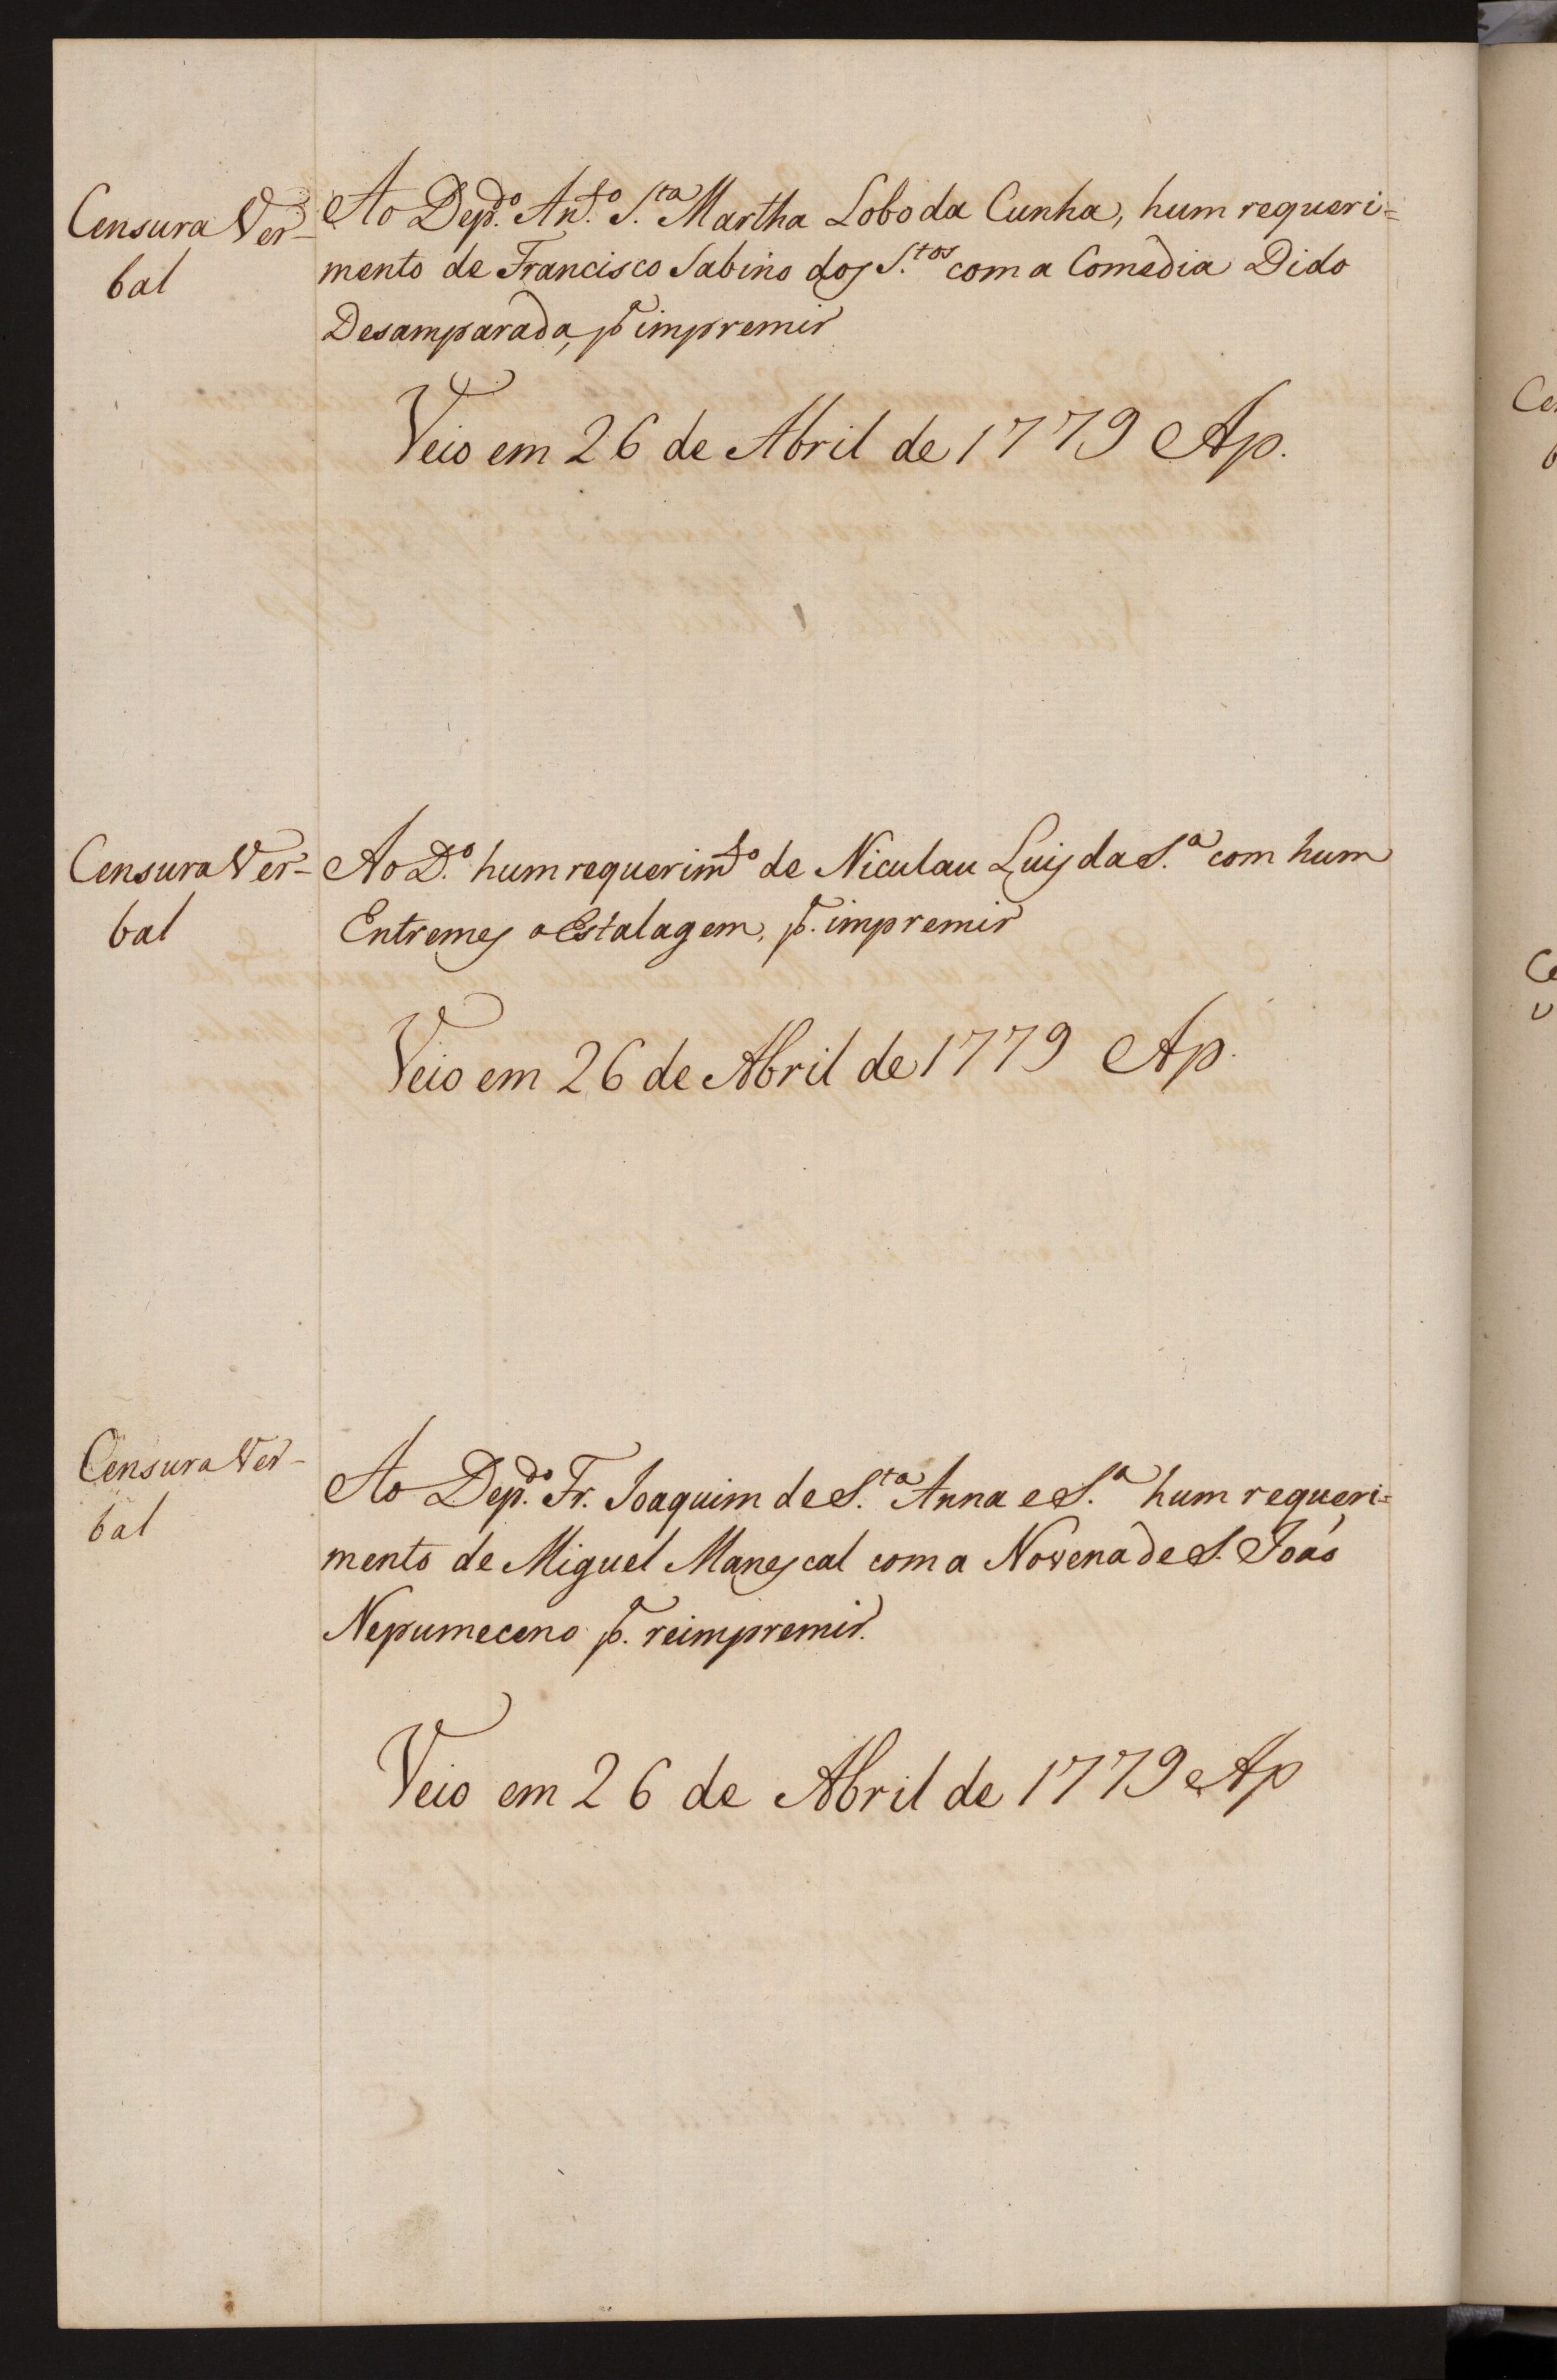 Censura Ver-
bal
Ao Dep.do An.to S.ta Martha Lobo da Cunha, hum requeri=
mento de Francisco Sabino dos S.tos com a Comedia Dido
Desamparada, p.a impremir
Veio em 26 de Abril de 1779 Ap.
Censura Ver-
bal
Ao D.o hum requerim.to de Niculau Luis da S.a com hum
Entremes a Estalagem, p.a impremir
Veio em 26 de Abril de 1779 Ap.
Censura Ver-
bal
Ao Dep.do Fr. Joaquim de S.ta Anna e S.a hum requeri=
mento de Miguel Manescal com a Novena de S. Joaó
Nepumeceno p.a reimpremir.
Veio em 26 de Abril de 1779 Ap